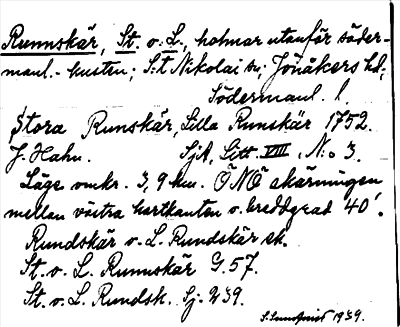 Runnskär, St. o. L., holmar utanför söder-
manl.-kusten; S:t Nikolai sn; Jönåkers hd;
Södermanl. l.
Stora Runskär, Lilla Runskär 1752.
J. Hahn. SjA, Litt. VIII, N:o 3.
Läge omkr. 3,9 km. ÖNÖ skärningen
mellan västra kartkanten o. breddgrad 40'.
Rundskär o. L. Rundskär ek.
St. o. L. Runnskär G. 57.
St. o. L. Rundsk. Sj. 239.
1939.